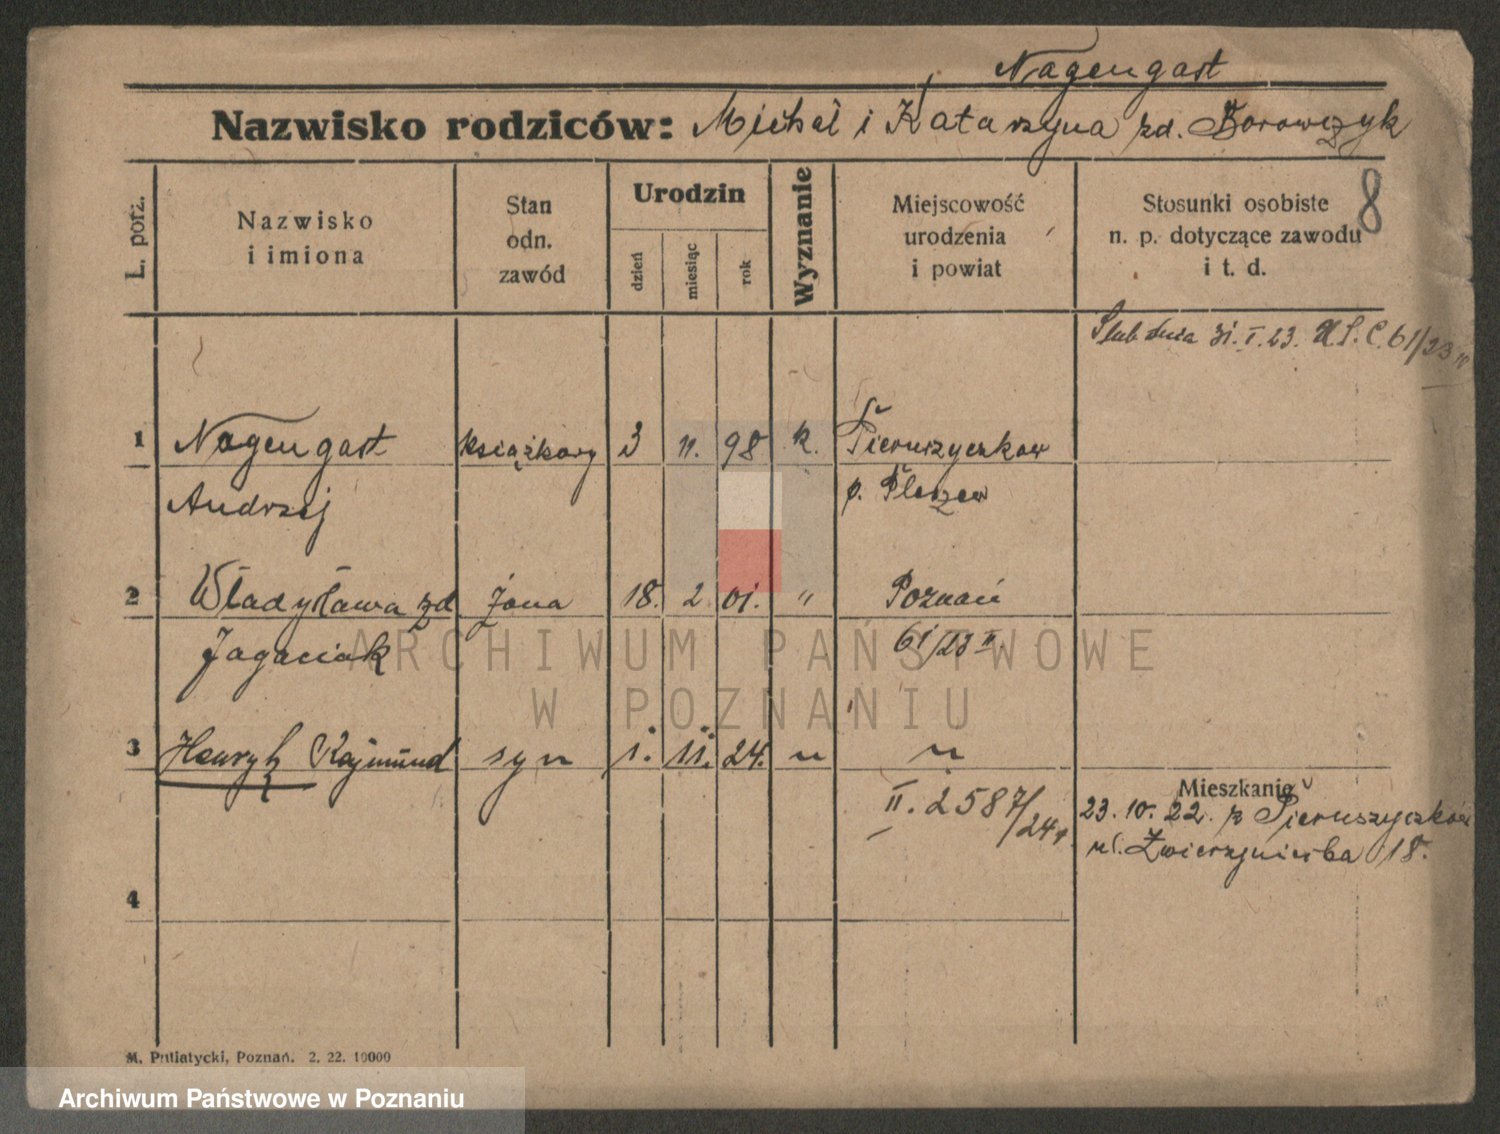 Nagengast
Nazwisko rodziców: Michał i Katarzyna zd. Borowczyk
L. porz.
Nazwisko
i imiona
Stan
odn.
zawód
Urodzin
dzień
miesiąc
rok
Wyznanie
Miejscowość
urodzenia
i powiat
Stosunki osobiste
n. p. dotyczące zawodu
i t. d.
8
Ślub dnia 31. I. 23. U.S.C. 61/23
1 Nagengast książkowy 3 11. 98 k. Pieruszyczków
Andrzej p. Pleszew
2 Władysława zd żona 18. 2 01. " Poznań
Jagaciak 61/23 II
3 Henryk Rajmund syn 1. 11. 24. " "
II. 2587/24
Mieszkanie
23. 10. 22. z Pieruszyczków
ul. Zwierzyniecka 18.
4
M. Putiatycki, Poznań. 2. 22. 10000
ARCHIWUM PAŃSTWOWE
W POZNANIU
Archiwum Państwowe w Poznaniu